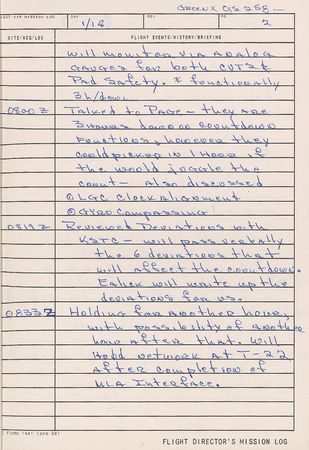 GREEN X OIS 258
FLIGHT DIR MISSION LOG
DAY
REV
PAGE
1/18
2
SITE/ACQ/LOS
FLIGHT EVENTS/HISTORY/BRIEFING
will monitor via analog
gauges for both CUTS &
Pad Safety. * functionally
3h/down
0800Z Talked to Page - they are
3 hours down on countdown
functions, however they
could pick up in 1 hour if
the would juggle the
count - also discussed
① LGC Clock alignment
② Gyro Compassing
0819Z Reviewed Deviations with
KSTC - will pass verbally
the 6 deviations that
will affect the countdown.
will write up the
deviations for us.
0833Z Holding for another hour,
with possibility of another
hour after that. Will
Hold network at T-22
after completion of
MLA Interface.
FORM 1441 (APR 66)
FLIGHT DIRECTOR'S MISSION LOG